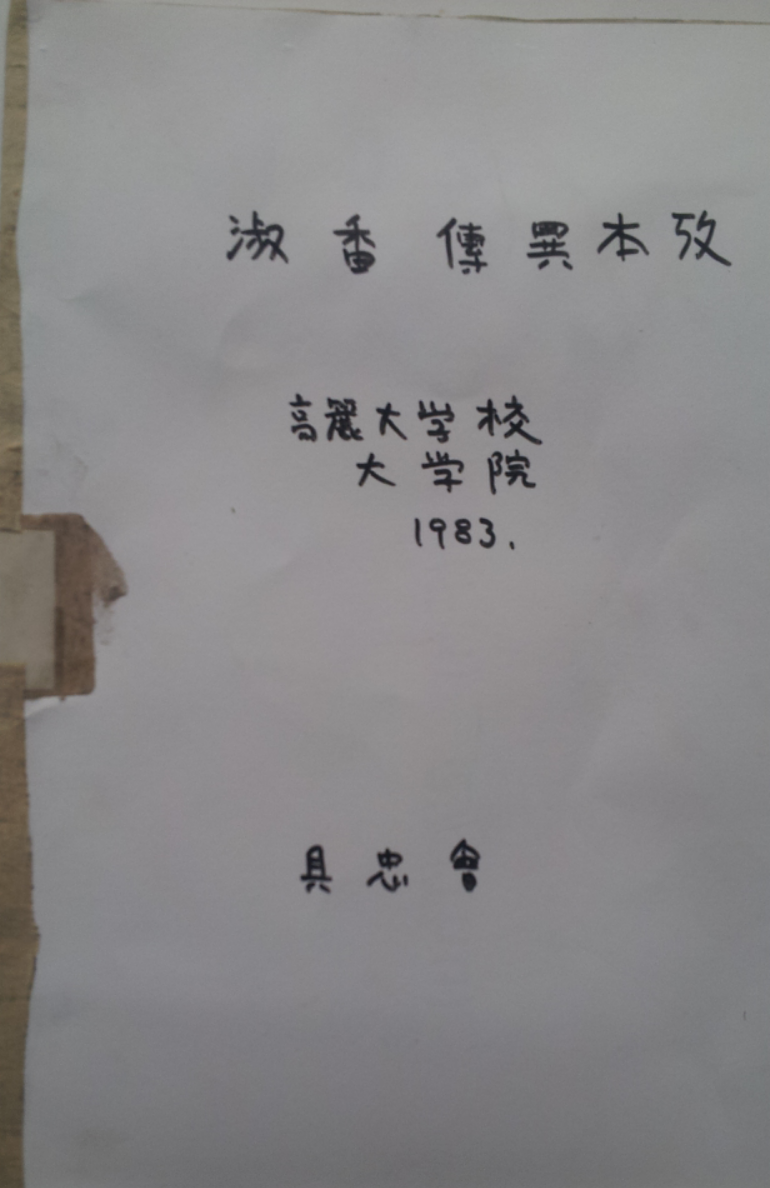 淑香傳異本攷
高麗大学校
大学院
1983.
具忠會